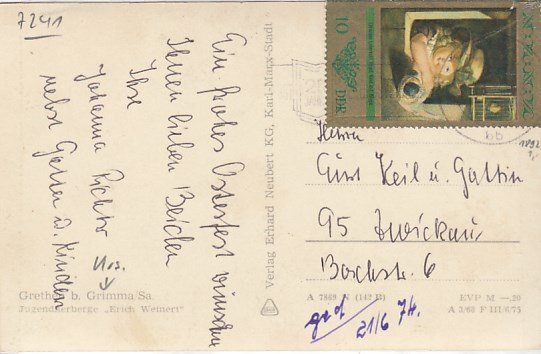 7241
Ein frohes Osterfest wünschen
Ihnen lieben Beiden
Ihre
Johanna Richter
nebst Gatten u. Kinder
Grethen b. Grimma/Sa.
Jugendherberge „Erich Weinert“
Verlag Erhard Neubert KG, Karl-Marx-Stadt
10
DDR
Herrn
Curt Keil u. Gattin
95 Zwickau
Bachstr. 6
A 7969 N
EVP M —.20
21/6 74.